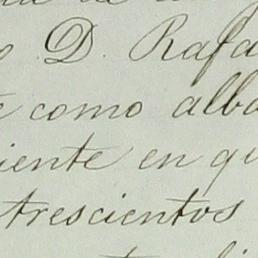 D. Rafa
como alba
iente en qu
trescientos